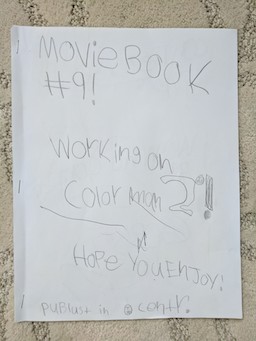 Movie BOOK
#9!
Working on
Color man 2!
Hope You EnJoy!
Publust in contr.